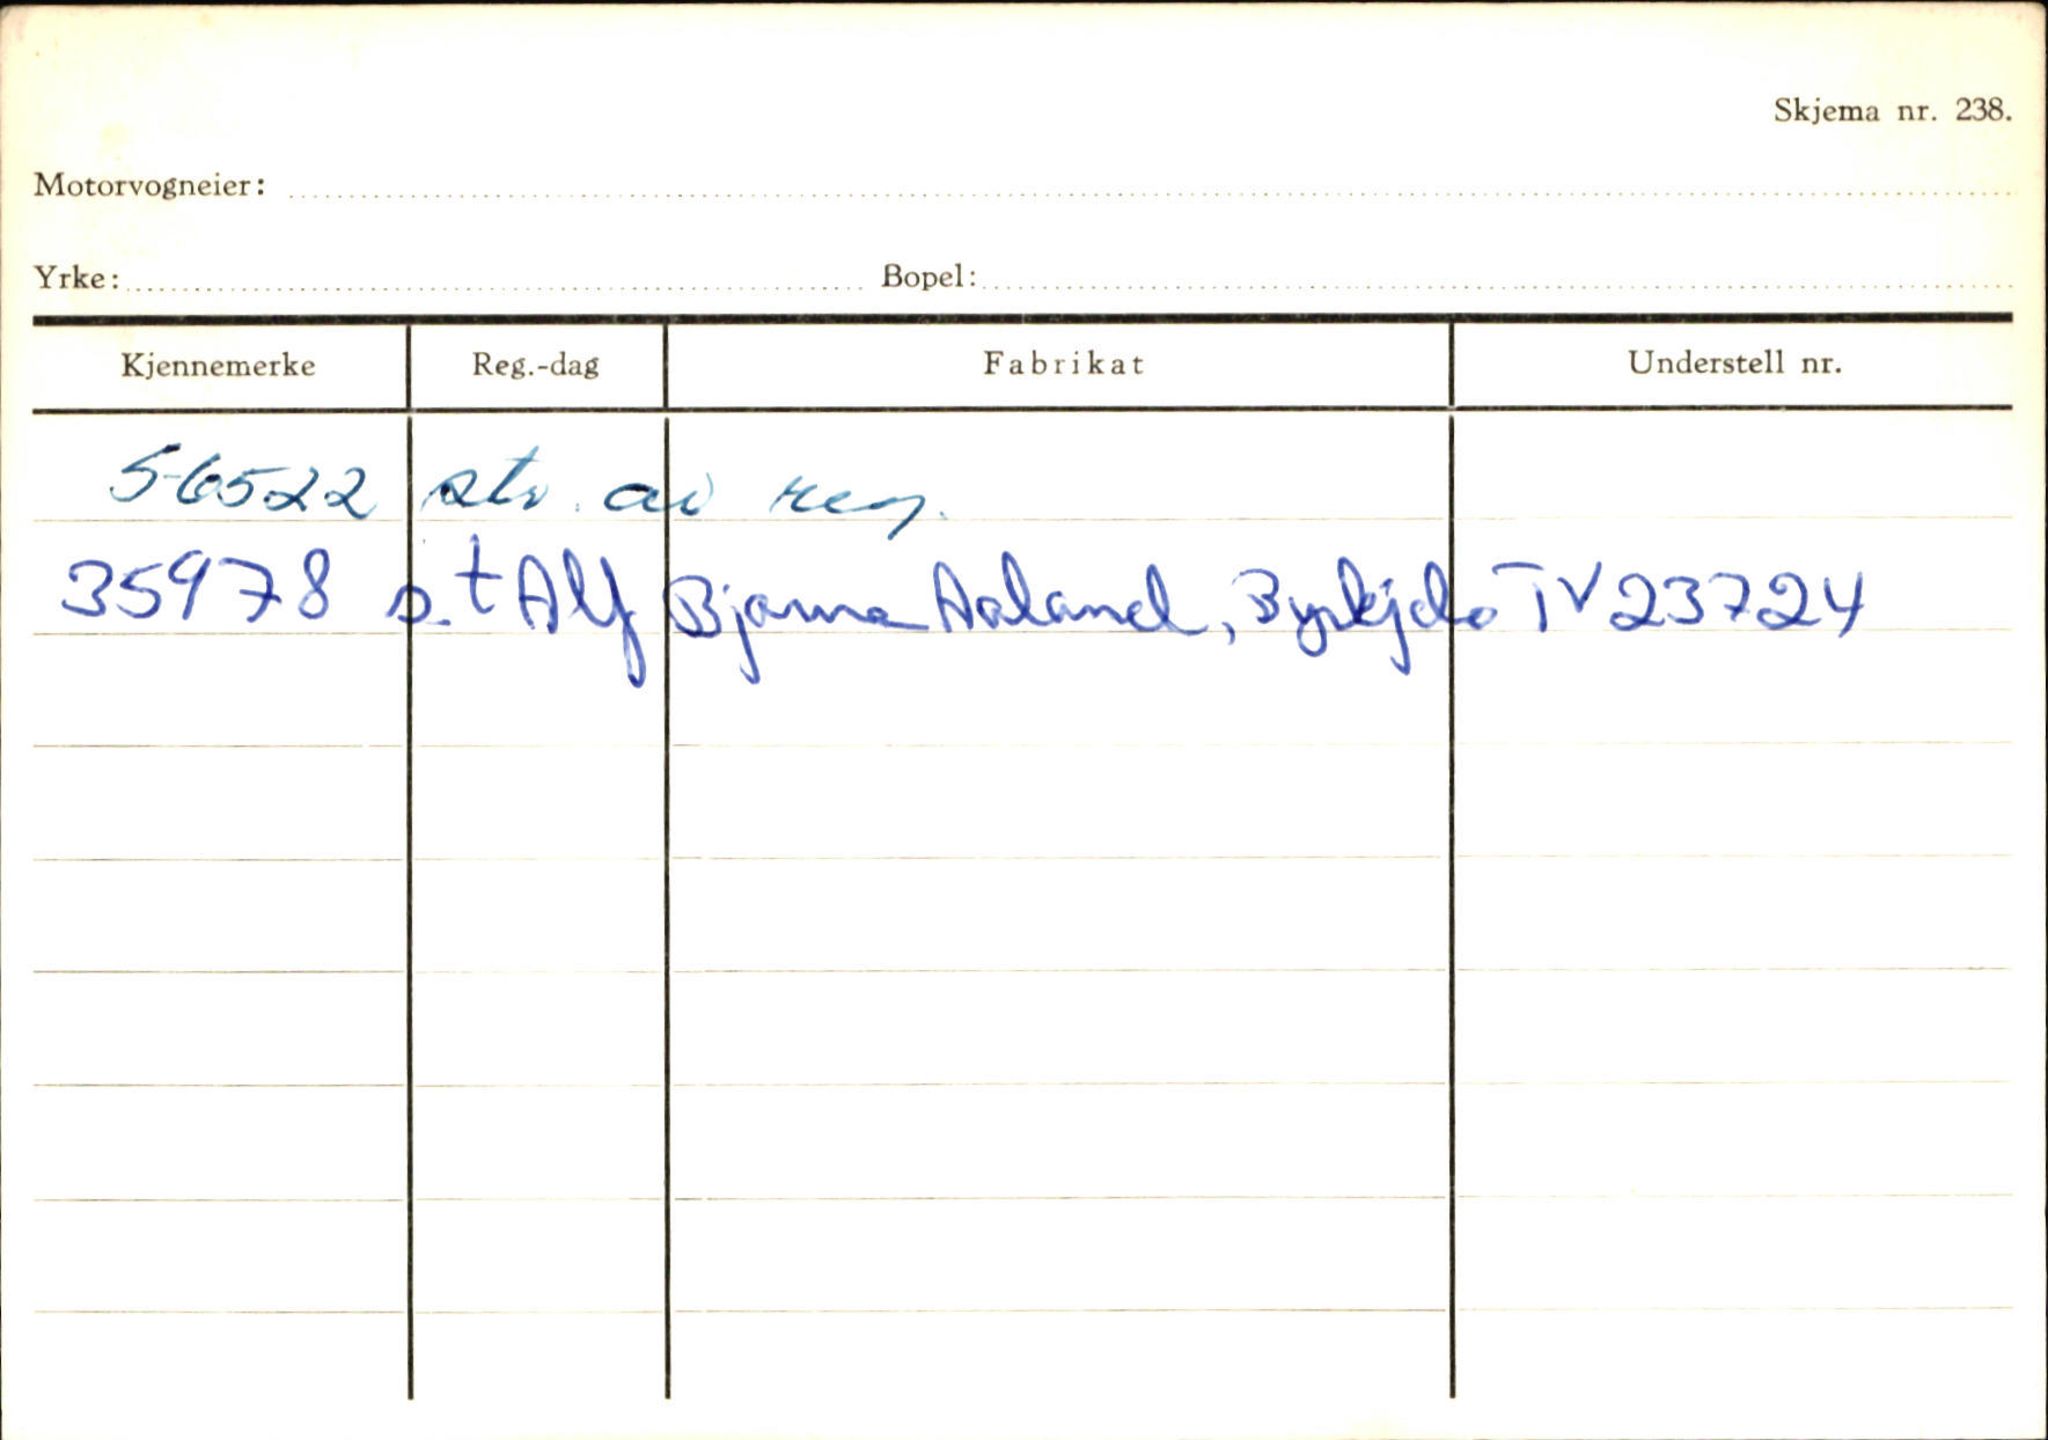 Skjema nr. 238.
Motorvogneier:
Yrke: Bopel:
Kjennemerke Reg.-dag Fabrikat Understell nr.
S-6522 str. av reg.
35978 s.t Alf Bjarne Aaland, Byrkjelo TV 23724